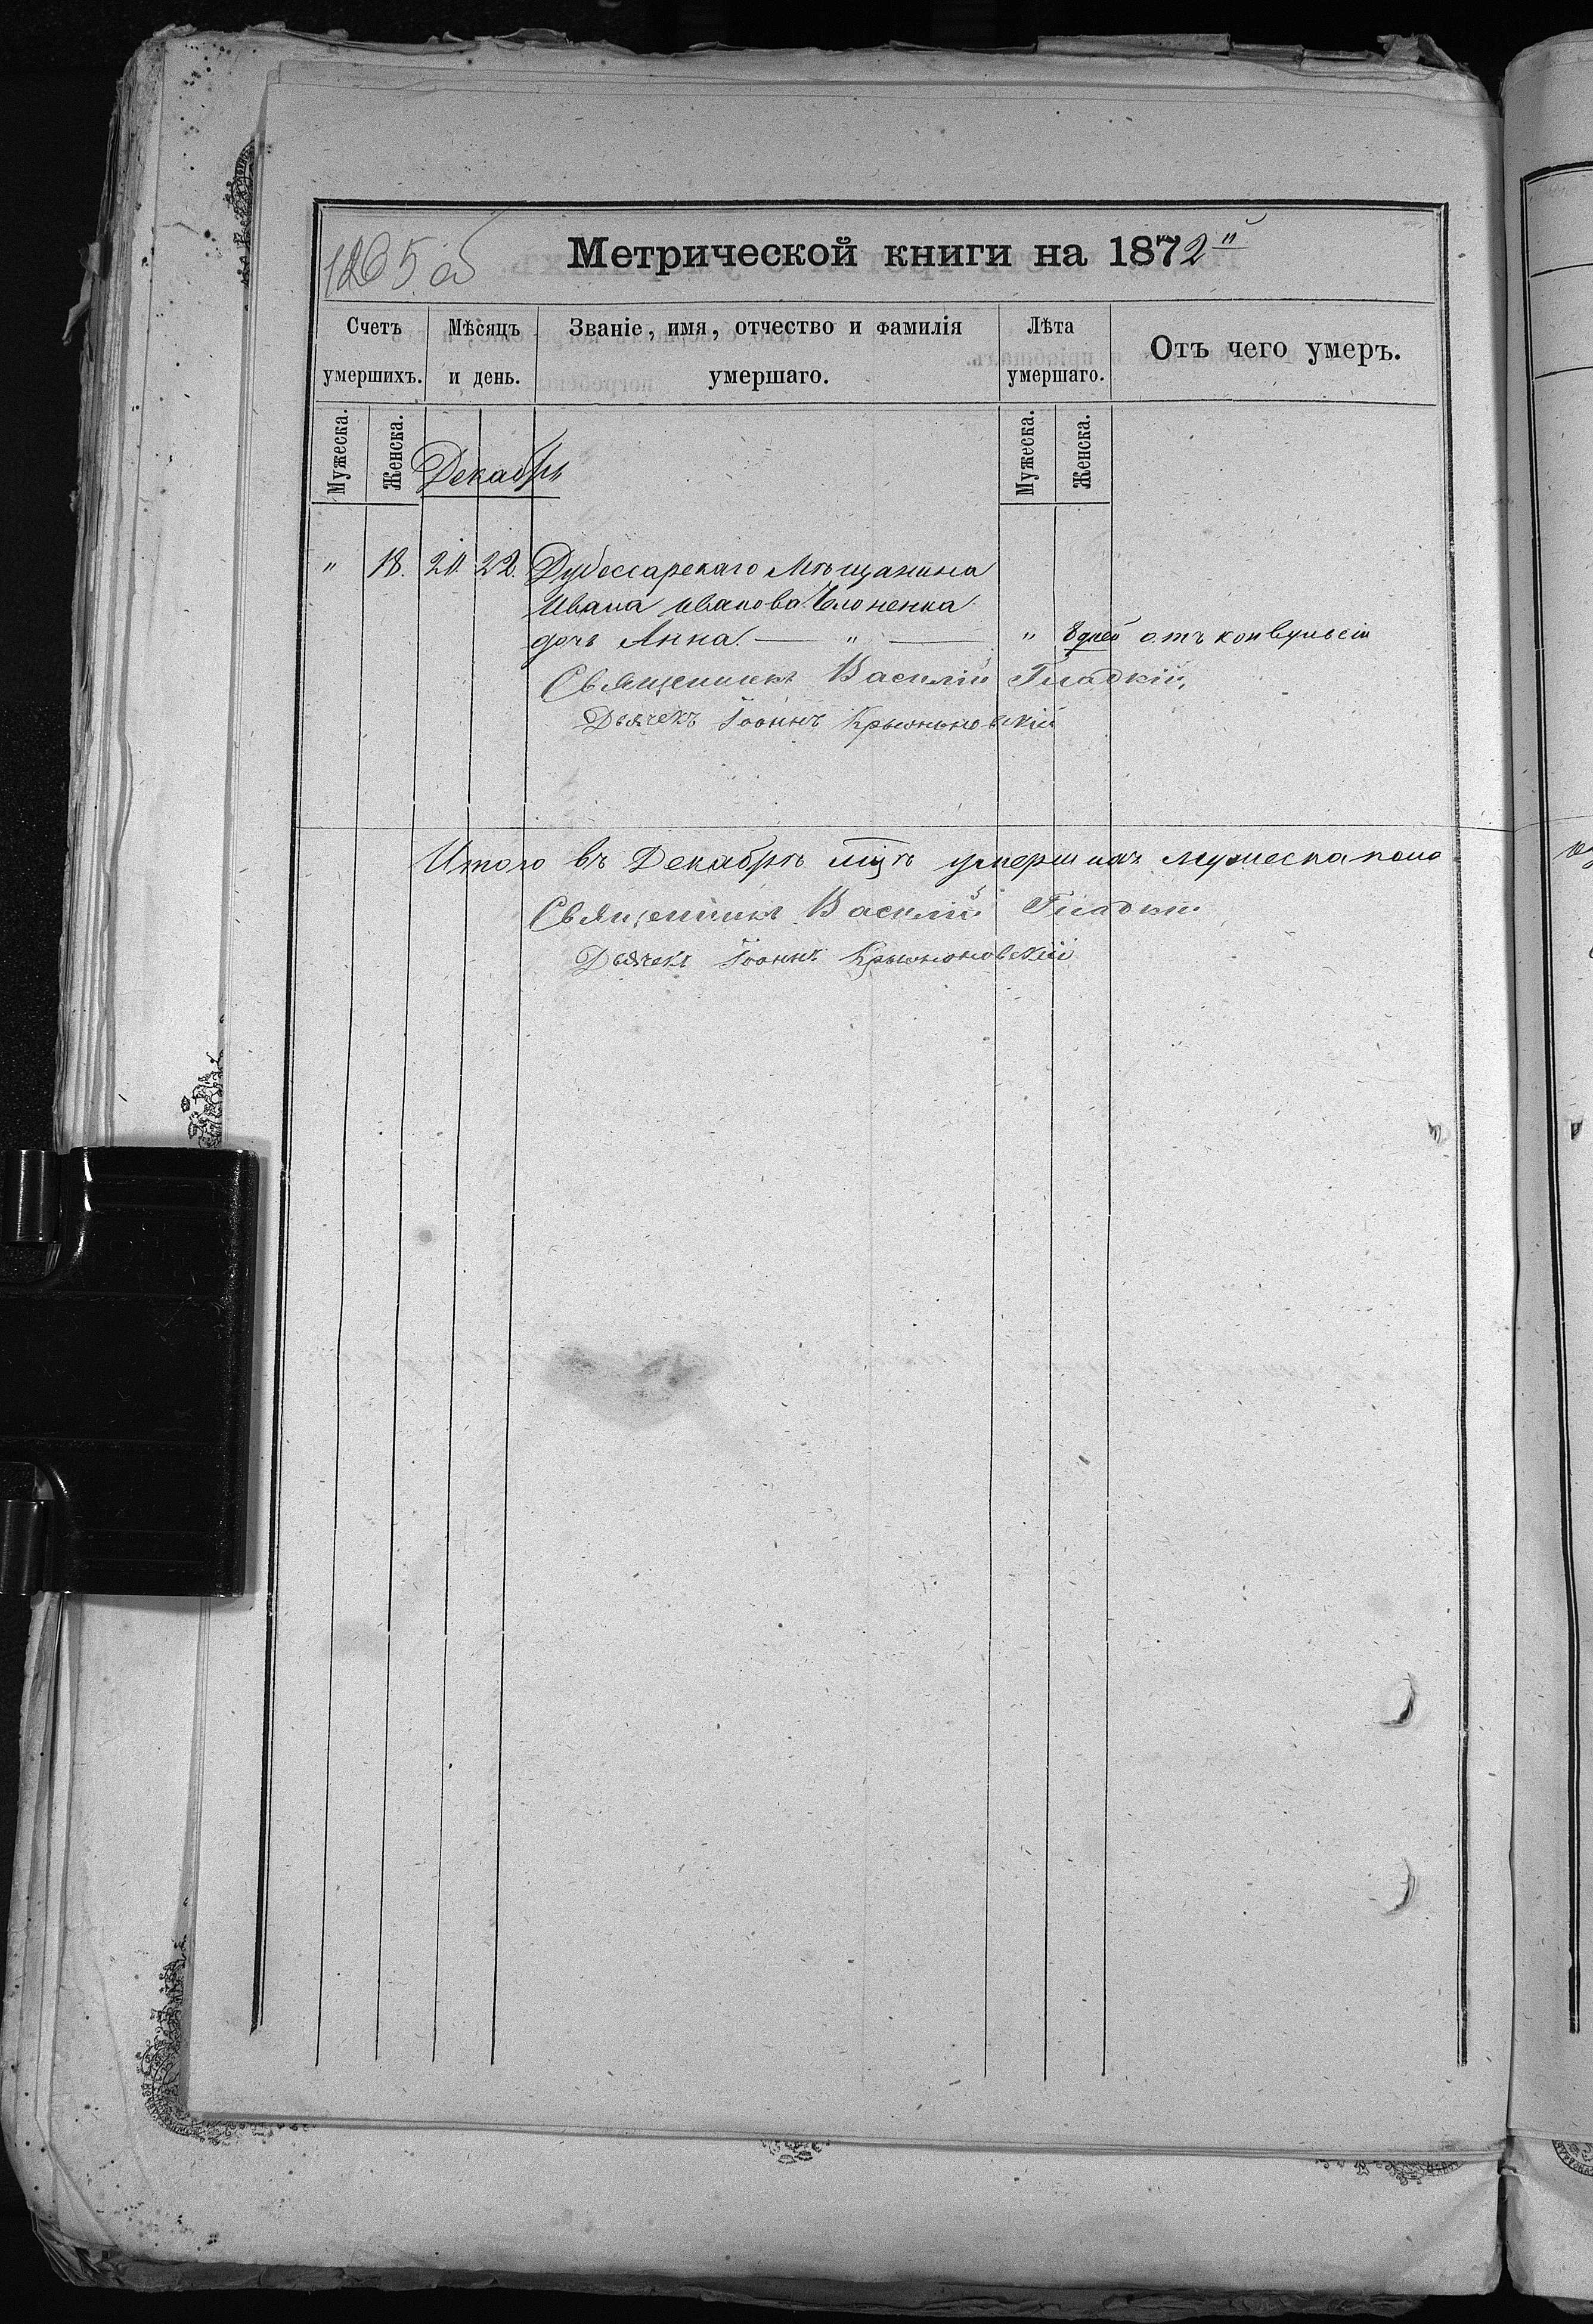 1265 об
Метрической книги на 1872й
Счетъ умершихъ.
Мѣсяцъ и день.
Званіе, имя, отчество и фамилія умершаго.
Лѣта умершаго.
Отъ чего умеръ.
Мужеска.
Женска.
Декабрь
Мужеска.
Женска.
" 18. 20. 22. Дубоссарскаго Мѣщанина
Ивана Иванова
дочь Анна. — " — " 8 дней отъ конвульсіи
Священникъ Василій Гладкій
Дьячекъ Іоаннъ
Итого въ Декабрѣ мцѣ умершихъ мужеска пола
Священникъ Василій Гладкій
Дьячекъ Іоаннъ